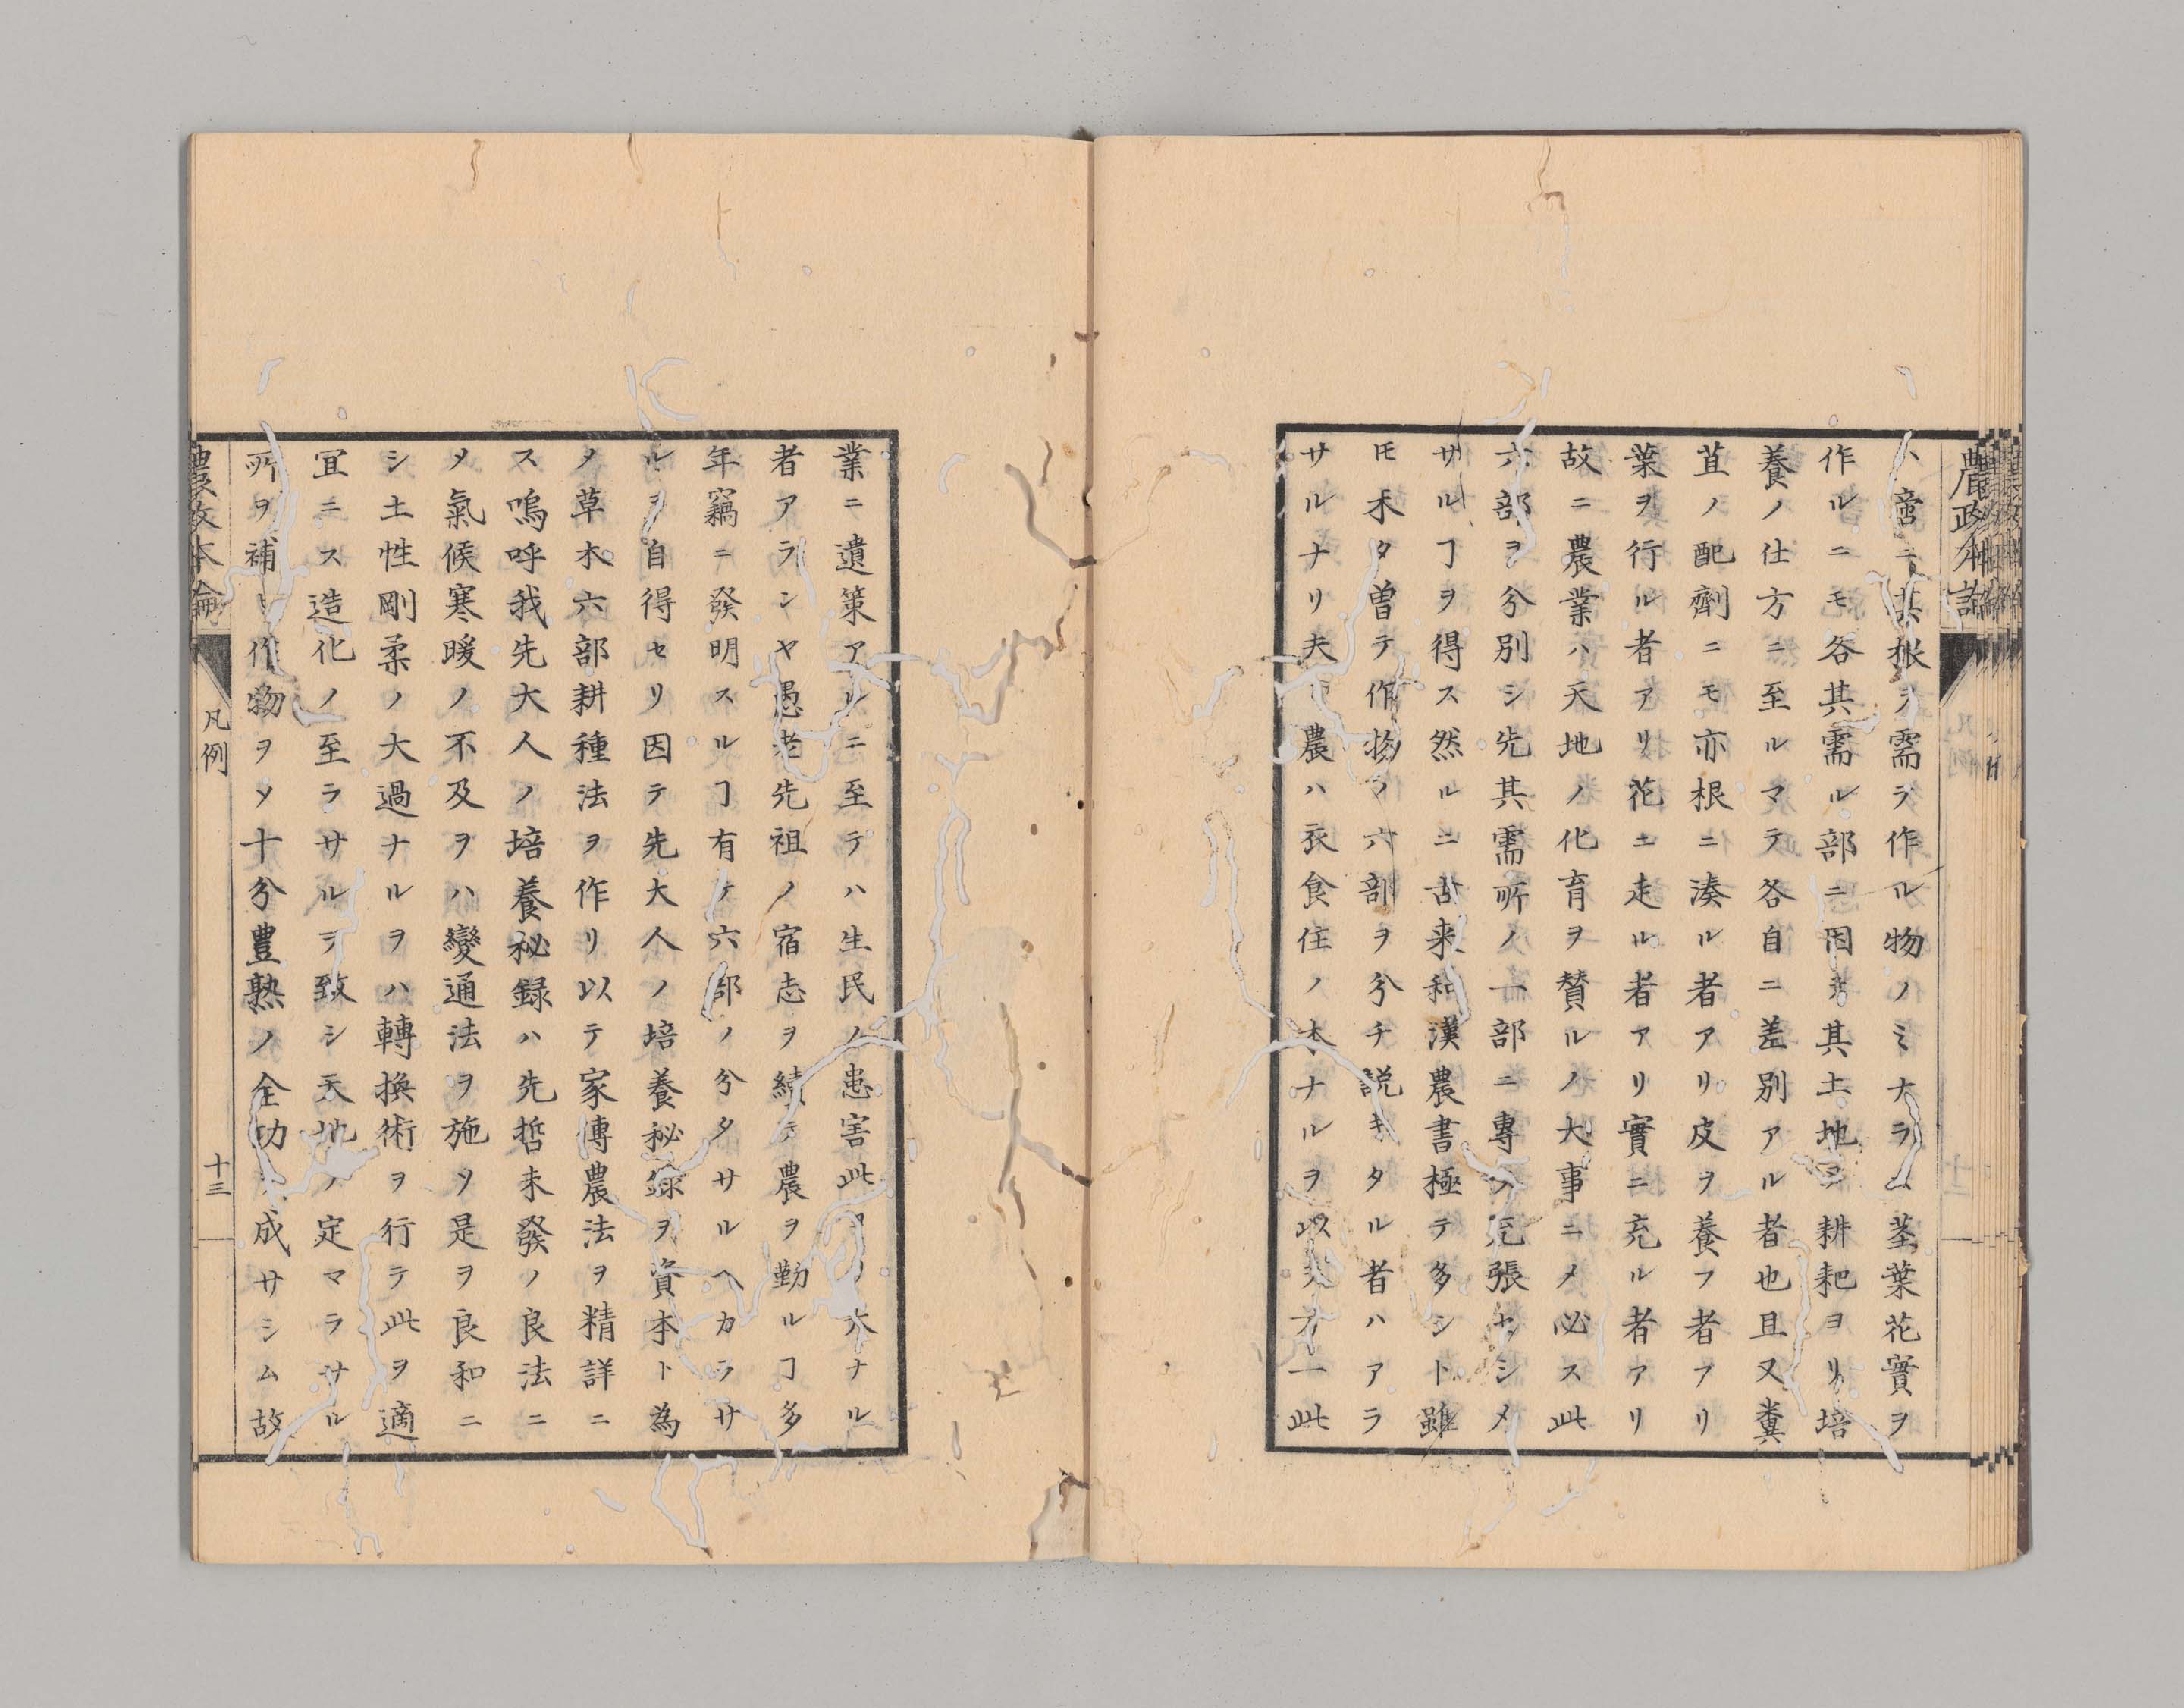 ハ啻ニ其根ヲ需ラ作ル物ノミナラ茎葉花實ヲ
作ルニモ各其需ル部ニ因其土地ヲ耕耙ヨリ培
養ノ仕方ニ至ルマラ各自ニ差別アル者也且又糞
苴ノ配劑ニモ亦根ニ湊ル者アリ皮ヲ養フ者アリ
葉ヲ行ル者アリ花ニ走ル者アリ實ニ充ル者アリ
故ニ農業ハ天地ノ化育ヲ賛ルノ大事ニメ必ス此
六部ヲ分別シ先其需所ノ一部ニ專ラ充張セシメ
サルヿヲ得ス然ルニ古来和漢農書極テ多シト雖
𪜈未タ曽テ作物ノ六部ヲ分チ説キタル者ハアラ
サルナリ夫農ハ衣食住ノ本ナルヲ以テ万一此
業ニ遺策アルニ至テハ生民ノ患害此ヨリ大ナル
者アランヤ愚老先祖ノ宿志ヲ續テ農ヲ勤ルヿ多
年竊ニ發明スルヿ有テ六部ノ分タサルヘカラサ
ルヲ自得セリ因テ先大人ノ培養秘録ヲ資本ト為
メ草木六部耕種法ヲ作リ以テ家傳農法ヲ精詳ニ
ス嗚呼我先大人ノ培養秘録ハ先哲未發ノ良法ニ
ヲ氣候寒暖ノ不及ヲハ變通法ヲ施メ是ヲ良和ニ
シ土性剛柔ノ大過ナルヲハ轉換術ヲ行テ此ヲ適
宜ニス造化ノ至ラサルヲ致シ天地ノ定マラサル
所ヲ補ヒ作物ヲメ十分豊熟ノ全功ヲ成サシム故
農政本論
凡例
十三